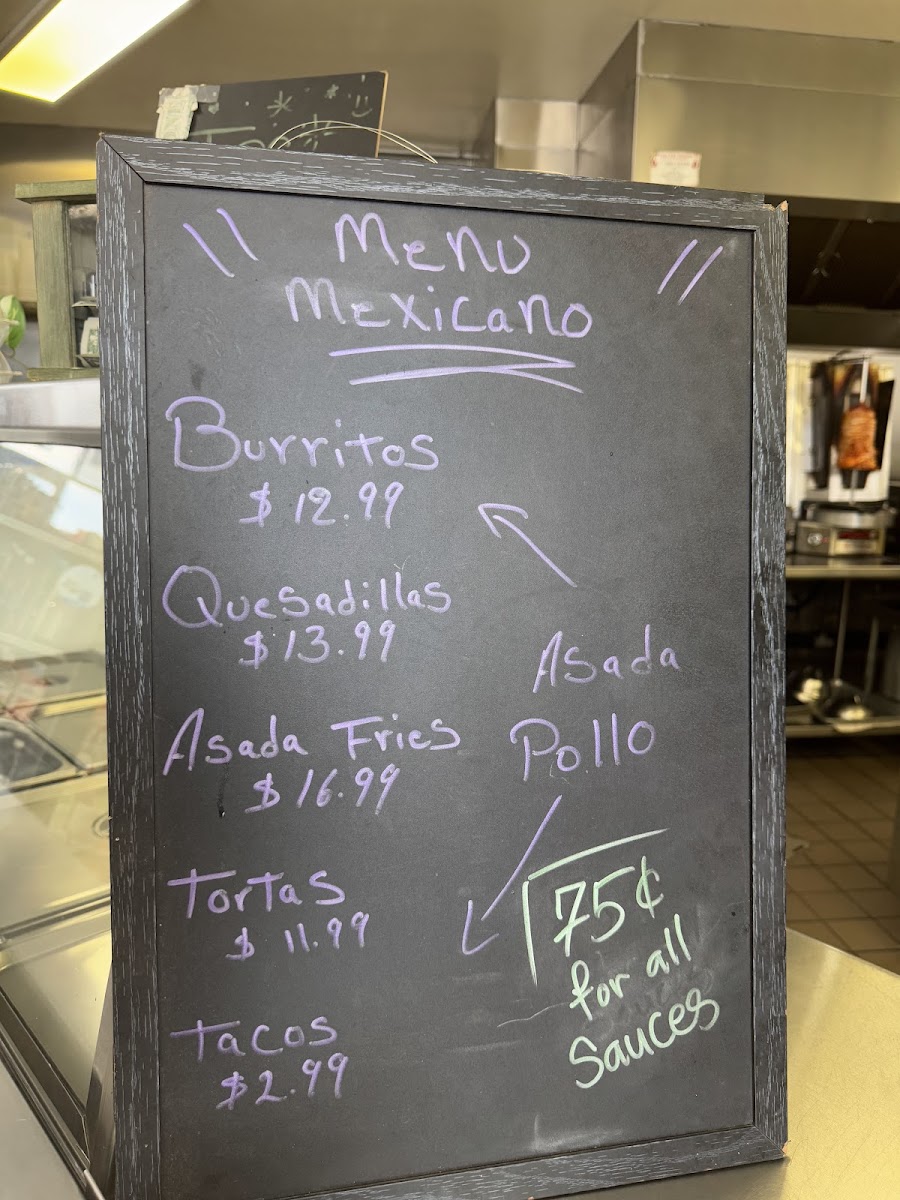 Menu
Mexicano
Burritos
$12.99
Quesadillas
$13.99
Asada Fries
$16.99
Tortas
$11.99
Tacos
$2.99
Asada
Pollo
75¢
for all
Sauces